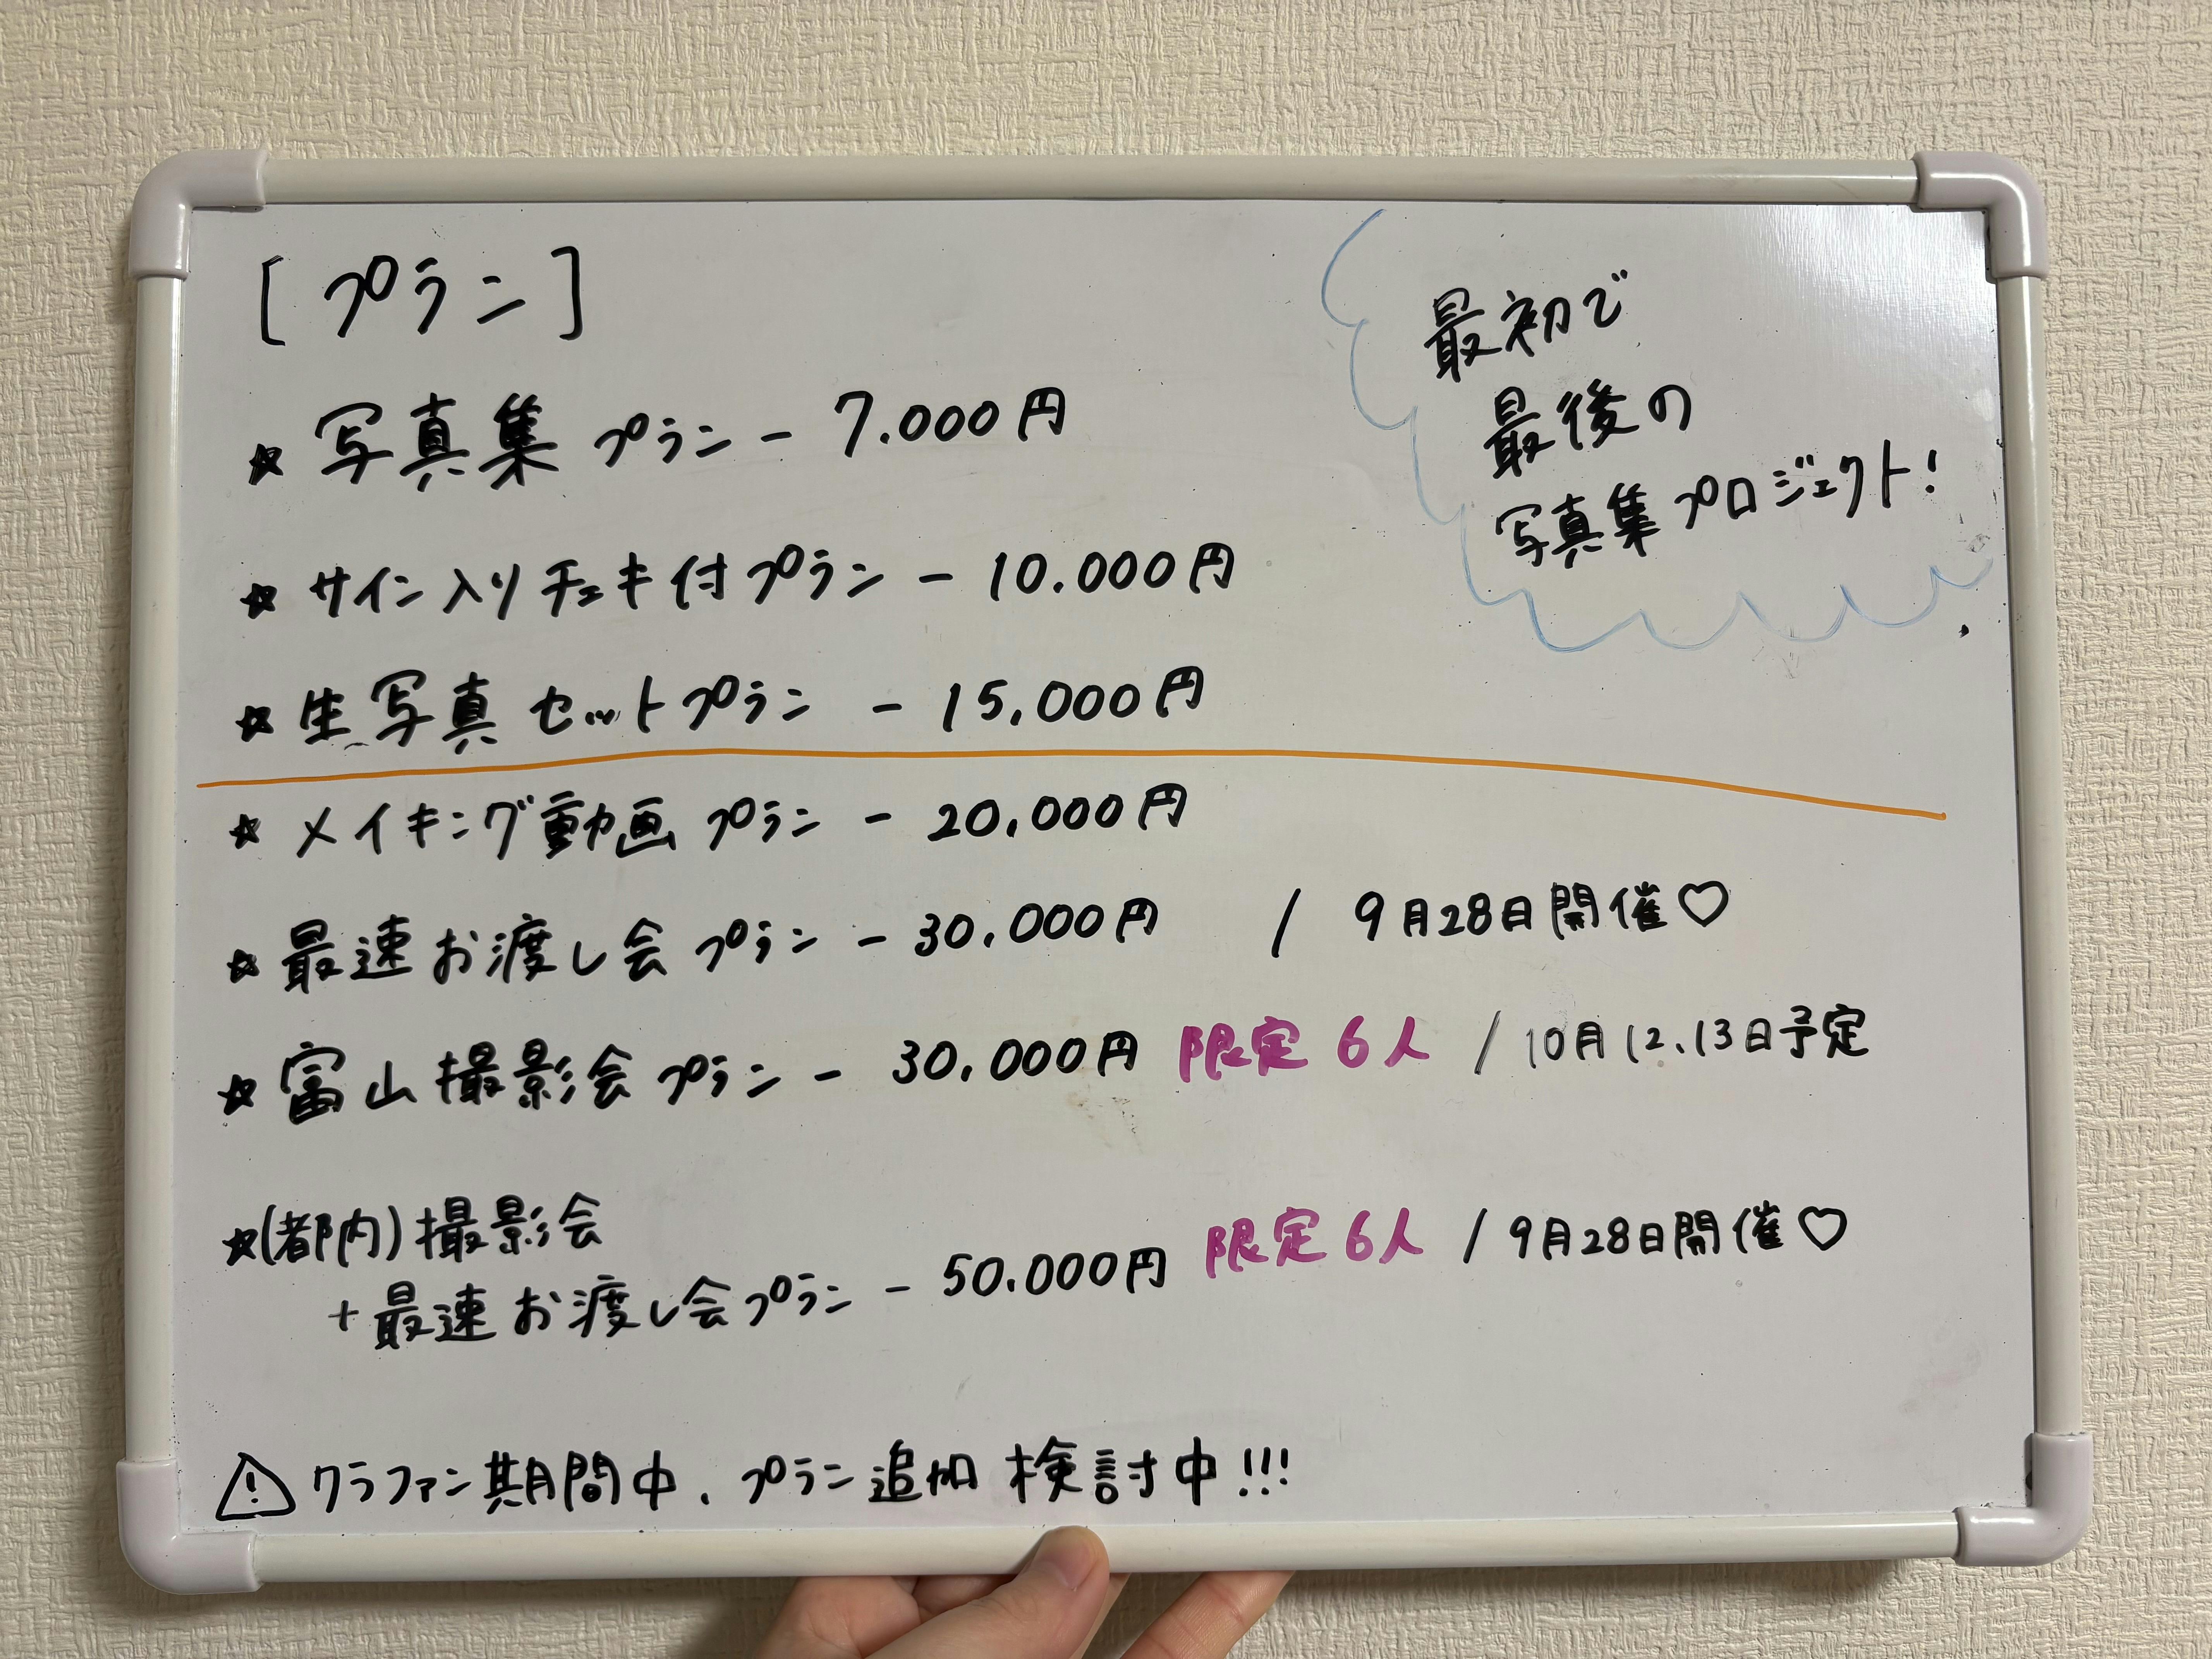 [プラン]
最初で
最後の
写真集プロジェクト!
☆写真集プラン - 7.000円
☆サイン入りチェキ付プラン - 10.000円
☆生写真セットプラン - 15,000円
☆メイキング動画プラン - 20,000円
☆最速お渡し会プラン - 30,000円 / 9月28日開催♡
☆富山撮影会プラン - 30,000円 限定6人 / 10月12、13日予定
☆(都内)撮影会
+最速お渡し会プラン - 50.000円 限定6人 / 9月28日開催♡
⚠クラファン期間中、プラン追加検討中!!!